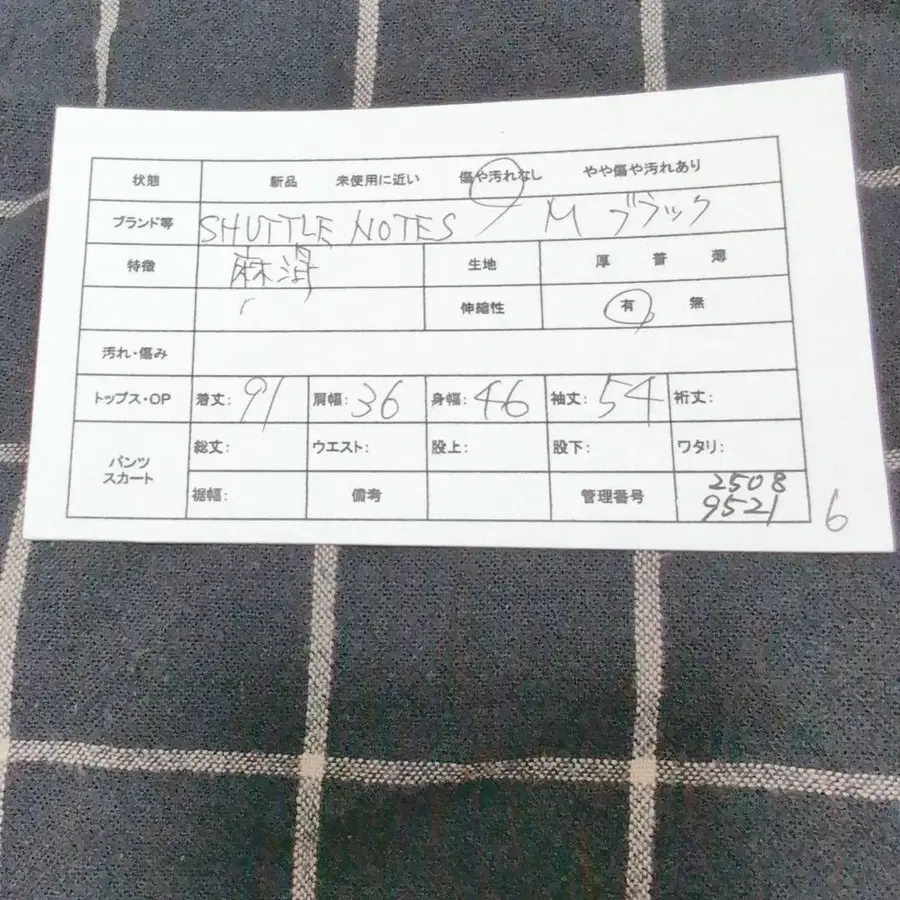 状態 新品 未使用に近い 傷や汚れなし やや傷や汚れあり
ブランド等 SHUTTLE NOTES M ブラック
特徴 麻混 生地 厚 普 薄
伸縮性 有 無
汚れ・傷み
トップス・OP 着丈: 91 肩幅: 36 身幅: 46 袖丈: 54 裄丈:
パンツ
スカート
総丈: ウエスト: 股上: 股下: ワタリ:
裾幅: 備考 管理番号 2508
9521 6